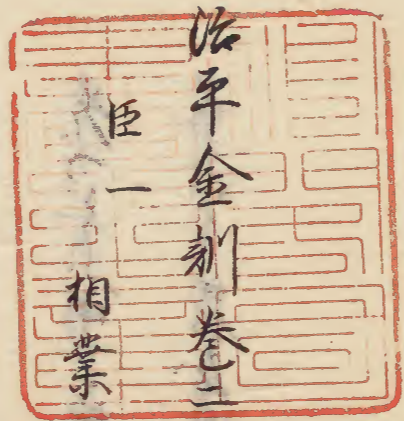 治平金訓卷二
臣一
相業